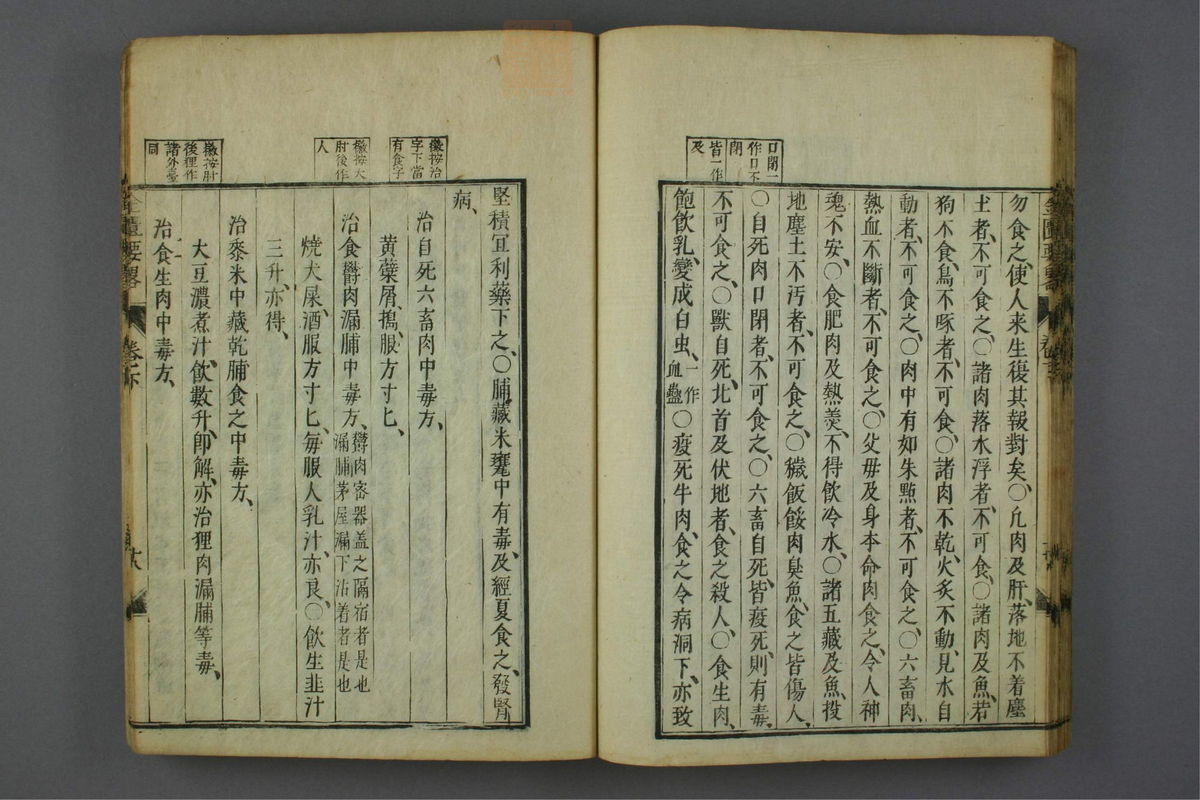 口閉一
作口不
閉
皆一作
及
勿食之、使人来生復其報對矣、〇凢肉及肝、落地不着塵
土者、不可食之、〇諸肉落水浮者、不可食、〇諸肉及魚、若
狗不食、鳥不啄者、不可食、〇諸肉不乾、火炙不動、見水自
動者、不可食之、〇肉中有如朱㸃者、不可食之、〇六畜肉、
熱血不斷者、不可食之、〇父毋及身本命肉食之、令人神
魂不安、〇食肥肉及熱羹、不得飲冷水、〇諸五藏及魚、投
地塵土不汚者、不可食之、〇穢飯餒肉臭魚、食之皆傷人、
〇自死肉口閉者、不可食之、〇六畜自死、皆疫死、則有毒、
不可食之、〇獸自死、北首及伏地者、食之殺人、〇食生肉、
飽飲乳、變成白虫、一作血蠱〇疫死牛肉、食之令病洞下、亦致
徽按治
字下當
有食字
徽按犬
肘後作
人
徽按肘
後狸作
諸外臺
同
堅積冝利藥下之、〇脯藏米甕中有毒、及經夏食之、發腎
病、
治自死六畜肉中毒方、
黄蘗屑、搗、服方寸匕、
治食鬱肉漏脯中毒方、鬱肉密器盖之隔宿者是也漏脯茅屋漏下沾着者是也
燒犬屎、酒服方寸匕、每服人乳汁、亦良、〇飲生韭汁
三升、亦得、
治黍米中藏乾脯食之中毒方、
大豆濃煮汁、飲數升、卽解、亦治狸肉漏脯等毒、
治食生肉中毒方、
金匱要畧
卷下